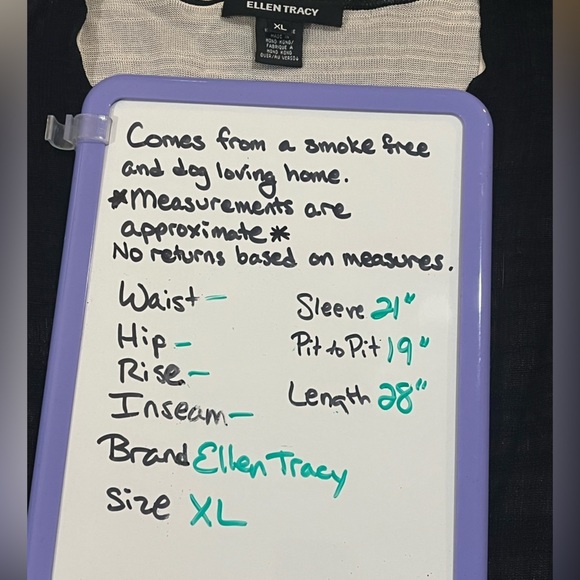 ELLEN TRACY
XL
MADE IN
HONG KONG/
FABRIQUE A
HONG KONG
Comes from a smoke free
and dog loving home.
*Measurements are
approximate*
No returns based on measures.
Waist - Sleeve 21"
Hip - Pit to Pit 19"
Rise -
Inseam - Length 28"
Brand Ellen Tracy
Size XL